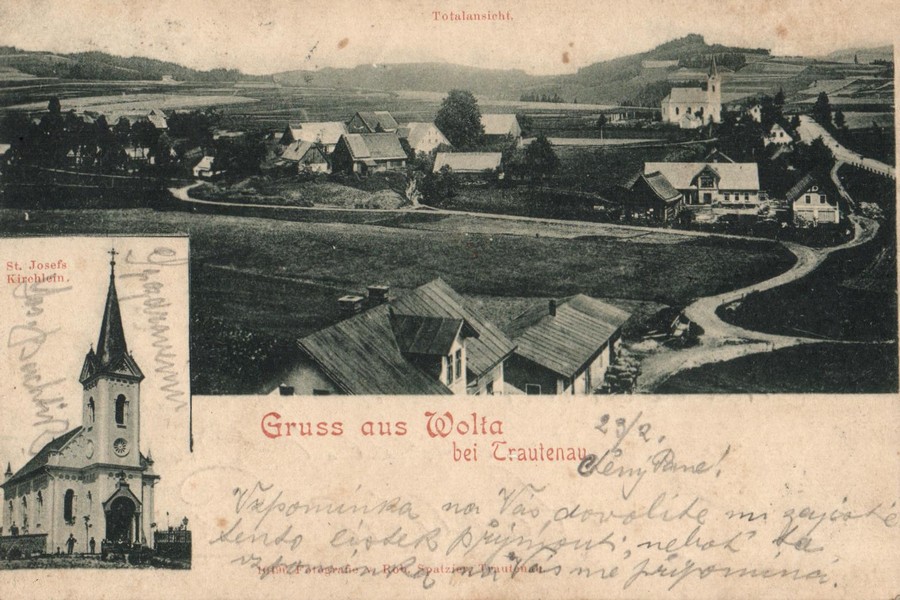 Totalansicht.
St. Josefs
Kirchlein.
Gruss aus Wolta
bei Trautenau.
23/2.
Ctěný Pane!
Vzpomínka na Vás dovolíte mi zajisté
tento lístek přijmouti, neboť ta
vzpomínka na Vás mě připomíná.
Fotografie v. Rob. Spatzier, Trautenau.